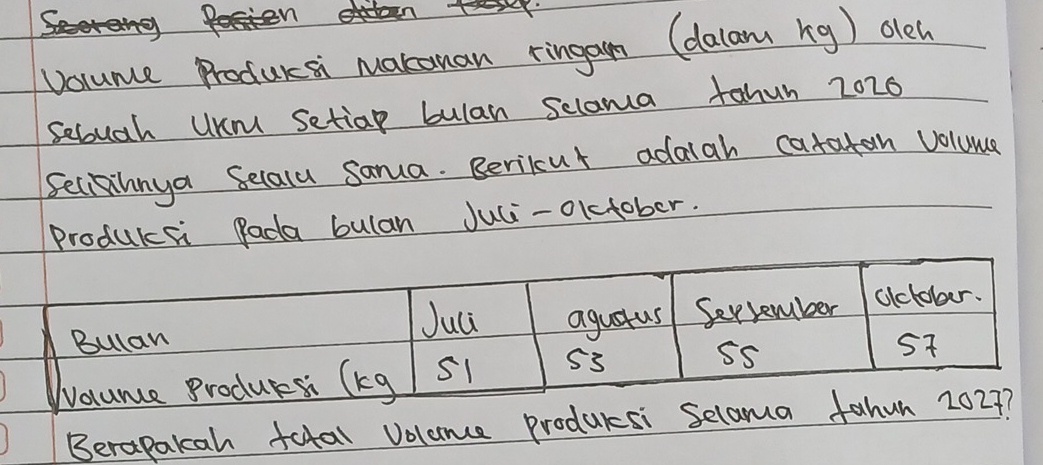 Seorang Pasien
Volume Produksi Makanan ringan (dalam kg) oleh
sebuah UKM setiap bulan selama tahun 2026
selisihnya selalu sama. Berikut adalah catatan volume
produksi pada bulan Juli - Oktober.
Bulan Juli agustus September Oktober.
Volume Produksi (kg 51 53 55 57
Berapakah total volume produksi selama tahun 2027?